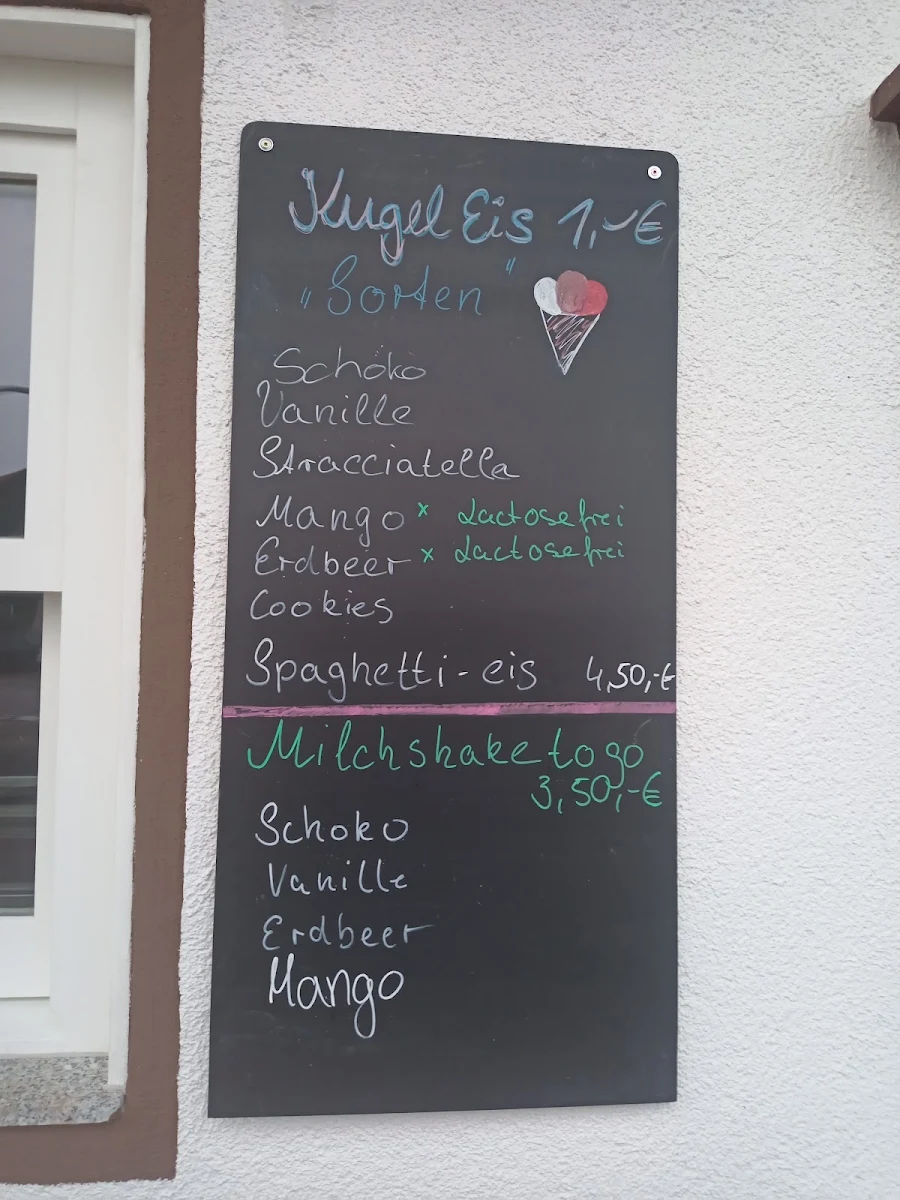 Kugel Eis 1,-€
„Sorten"
Schoko
Vanille
Stracciatella
Mango x Lactosefrei
Erdbeer x Lactosefrei
Cookies
Spaghetti-eis 4,50,-€
Milchshake to go
3,50,-€
Schoko
Vanille
Erdbeer
Mango